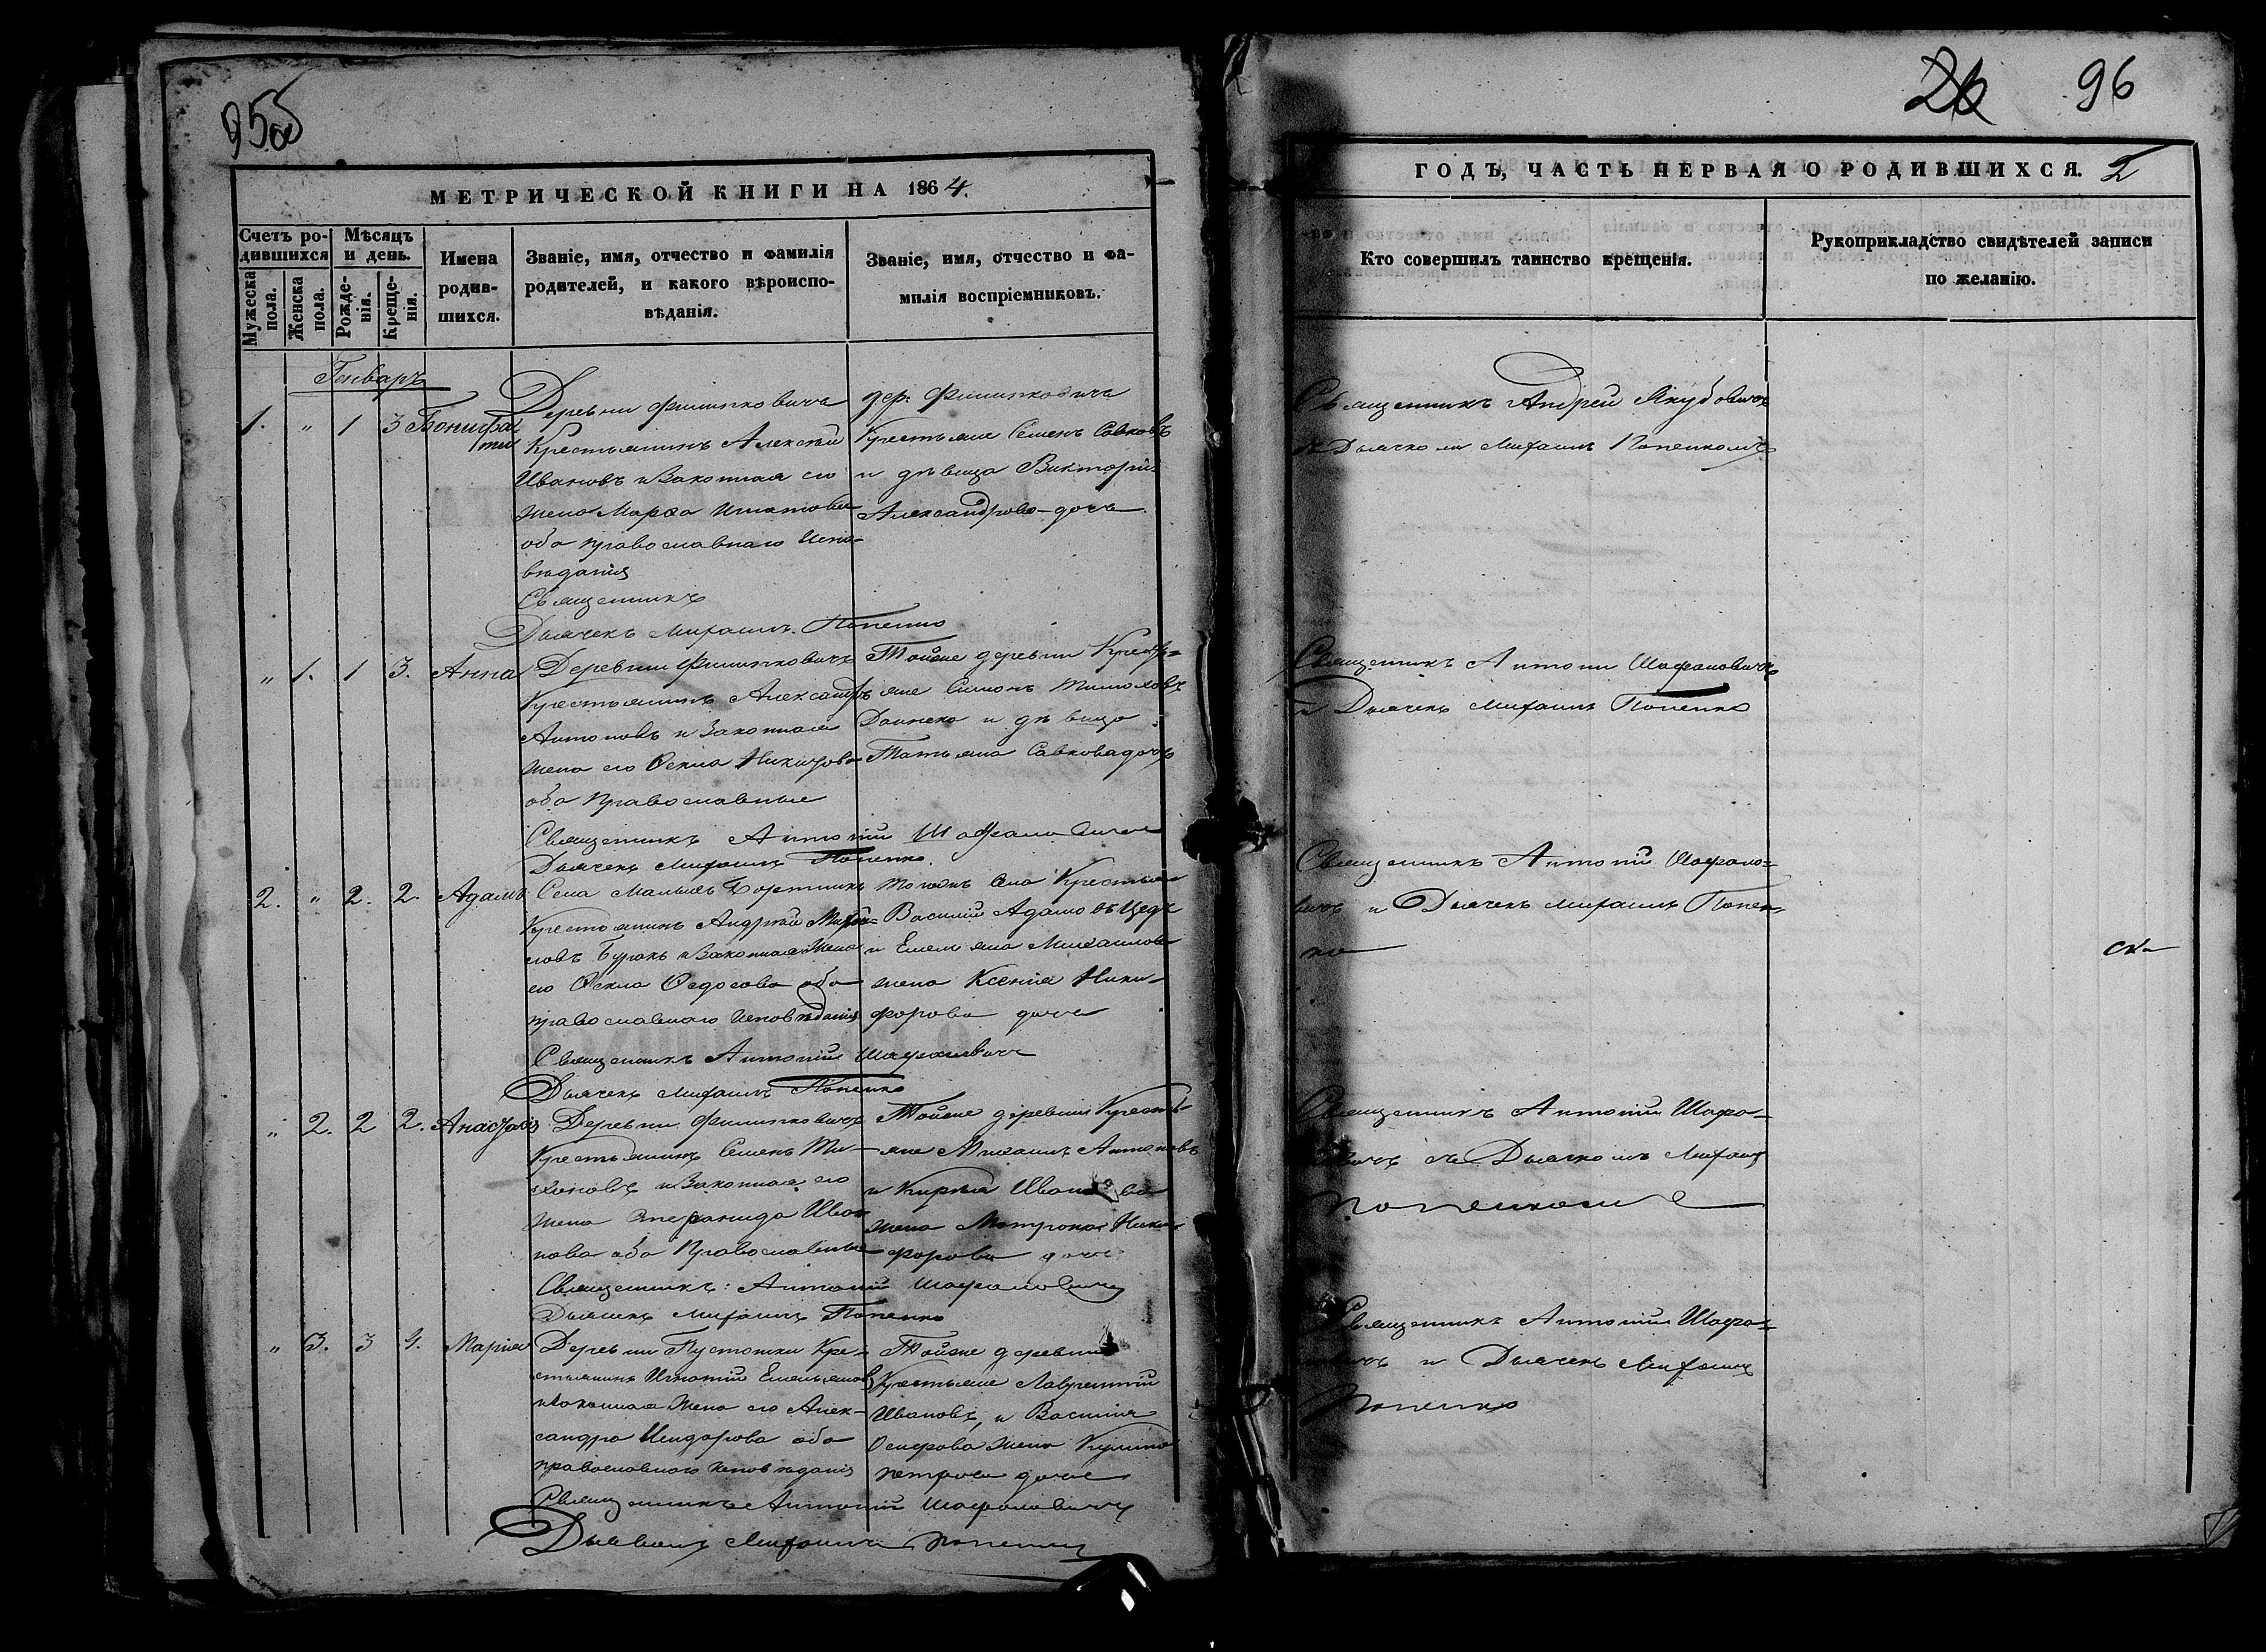 95об
МЕТРИЧЕСКОЙ КНИГИ НА 1864.
Счетъ ро-
дившихся
Мѣсяцъ
и день.
Мужеска
пола.
Женска
пола.
Рожде-
нія.
Креще-
нія.
Имена
родив-
шихся.
Званіе, имя, отчество и фамилія
родителей, и какого вѣроиспо-
вѣданія.
Званіе, имя, отчество и фа-
милія воспріемниковъ.
Генварь
1. " 1 3 Бонифа
тій
Деревни Филипковичъ
Крестьянинъ Алексѣй
Ивановъ и Законная его
жена Марѳа Игнатова
оба православнаго Испо-
вѣданія
Священникъ
Дьячекъ Михаилъ Попенко
дер: Филипковичъ
Крестьяне Семенъ Савковъ
и дѣвица Викторія
Александрова дочь
" 1. 1 3. Анна
Деревни Филипковичъ
Крестьянинъ Александръ
Антоновъ и Законная
жена его Ѳекла
оба Православные
Священникъ Антоній
Дьячекъ Михаилъ Попенко.
Тойже деревни Кресть=
яне Симонъ
и дѣвица
Татьяна Савкова дочь
2. " 2. 2. Адамъ
Села Малыхъ
Крестьянинъ Андрей
Буракъ и Законная жена
его Ѳекла Ѳедосова оба
православнаго Исповѣданія
Священникъ Антоній
Дьячекъ Михаилъ Попенко
Тогожъ Села Крестьяне
Василій Адамовъ
и Емельяна Михайлова
жена Ксенія Ники-
форова дочь
" 2. 2 2. Анастасія
Деревни Филипковичъ
Крестьянинъ Семенъ Ти-
хоновъ и Законная его
жена Степанида Ива
нова оба Православные
Священникъ: Антоній
Дьячекъ Михаилъ Попенко
Тойже деревни Кресть-
яне Михаилъ Антоновъ
и Ивано ва
жена Матрона Ники
форова дочь
" 3. 3 4. Марія
Деревни Пустошки Кре-
стьянинъ Игнатій Емельяновъ
и Законная жена его Алек-
сандра Исидорова оба
православнаго исповѣданія
Священникъ Антоній
Дьячекъ Михаилъ Попенко
Тойже деревни
Крестьяне Лаврентій
Ивановъ, и Василія
Осипова жена
Петрова дочь
26 96
ГОДЪ, ЧАСТЬ ПЕРВАЯ О РОДИВШИХСЯ. 2
Кто совершилъ таинство крещенія.
Рукоприкладство свидѣтелей записи
по желанію.
Священникъ Андрей Якубовичъ
Дьячкомъ Михаилъ Попенкомъ
Священникъ Антоній
и Дьячекъ Михаилъ Попенко
Священникъ Антоній
вичъ и Дьячекъ Михаилъ Попен-
ко
Священникъ Антоній
вичъ съ Дьячкомъ Михаил
Попенкомъ
Священникъ Антоній
вичъ и Дьячекъ Михаилъ
Попенко